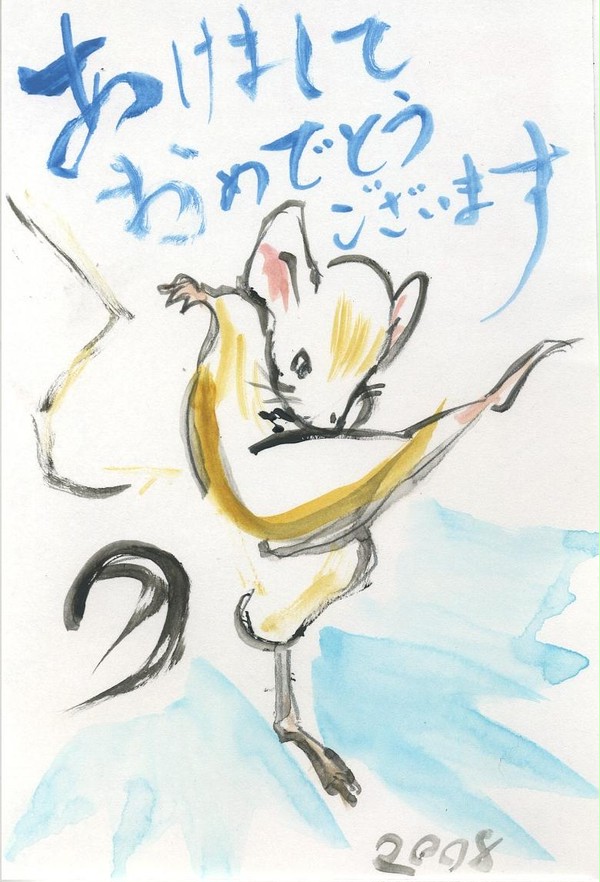 あけまして
おめでとう
ございます
2008